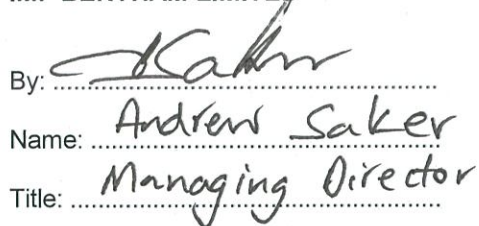 By: ........................................
Name: Andrew Saker
Title: Managing Director